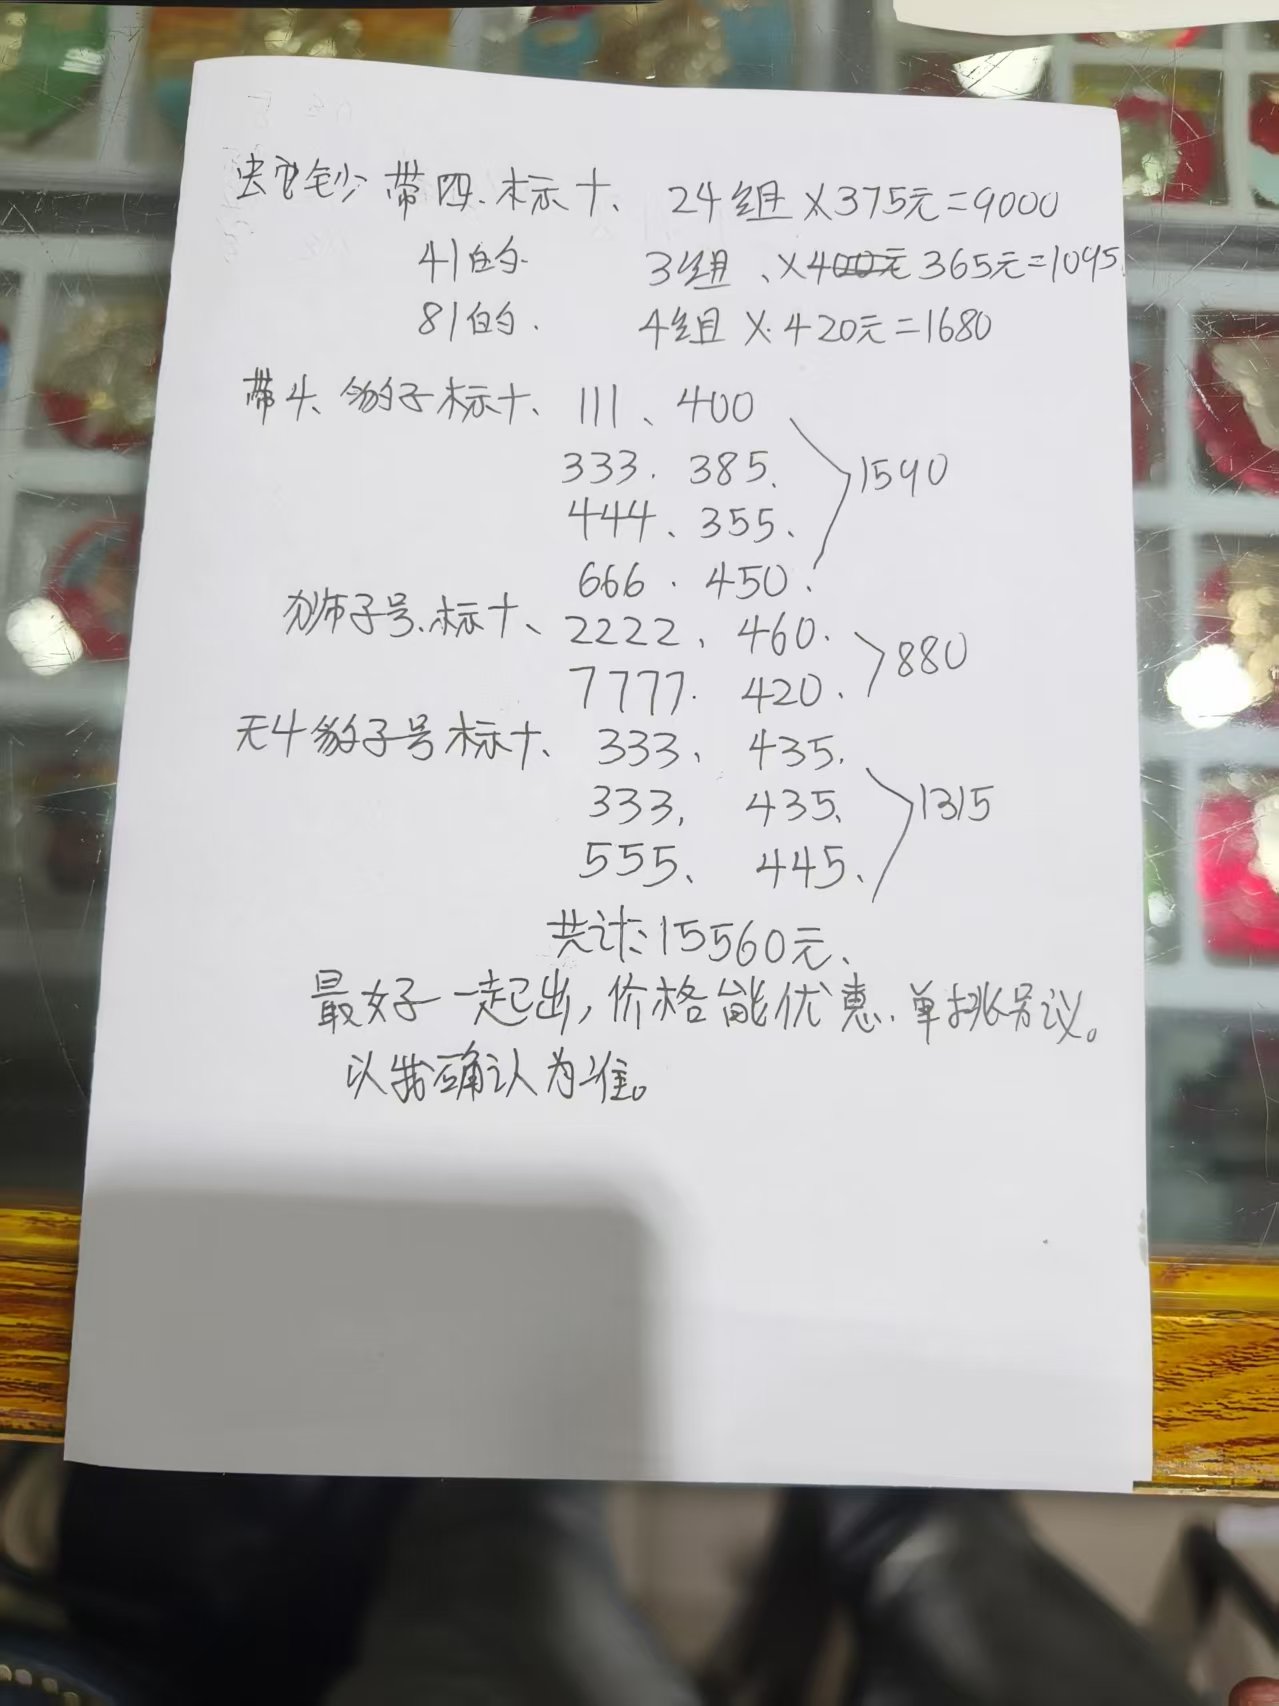 蛇钞带四、标十、 24组×375元=9000
41的. 3组、×400元 365元=1095.
81的. 4组×420元=1680
带4、豹子标十、 111、400
333. 385.
444、355、 1590
666. 450.
狮子号、标十、2222、460.
7777. 420. 880
无4豹子号标十、 333、 435.
333, 435. 1315
555、 445、
共计:15560元、
最好一起出,价格能优惠.单挑另议。
以我确认为准。